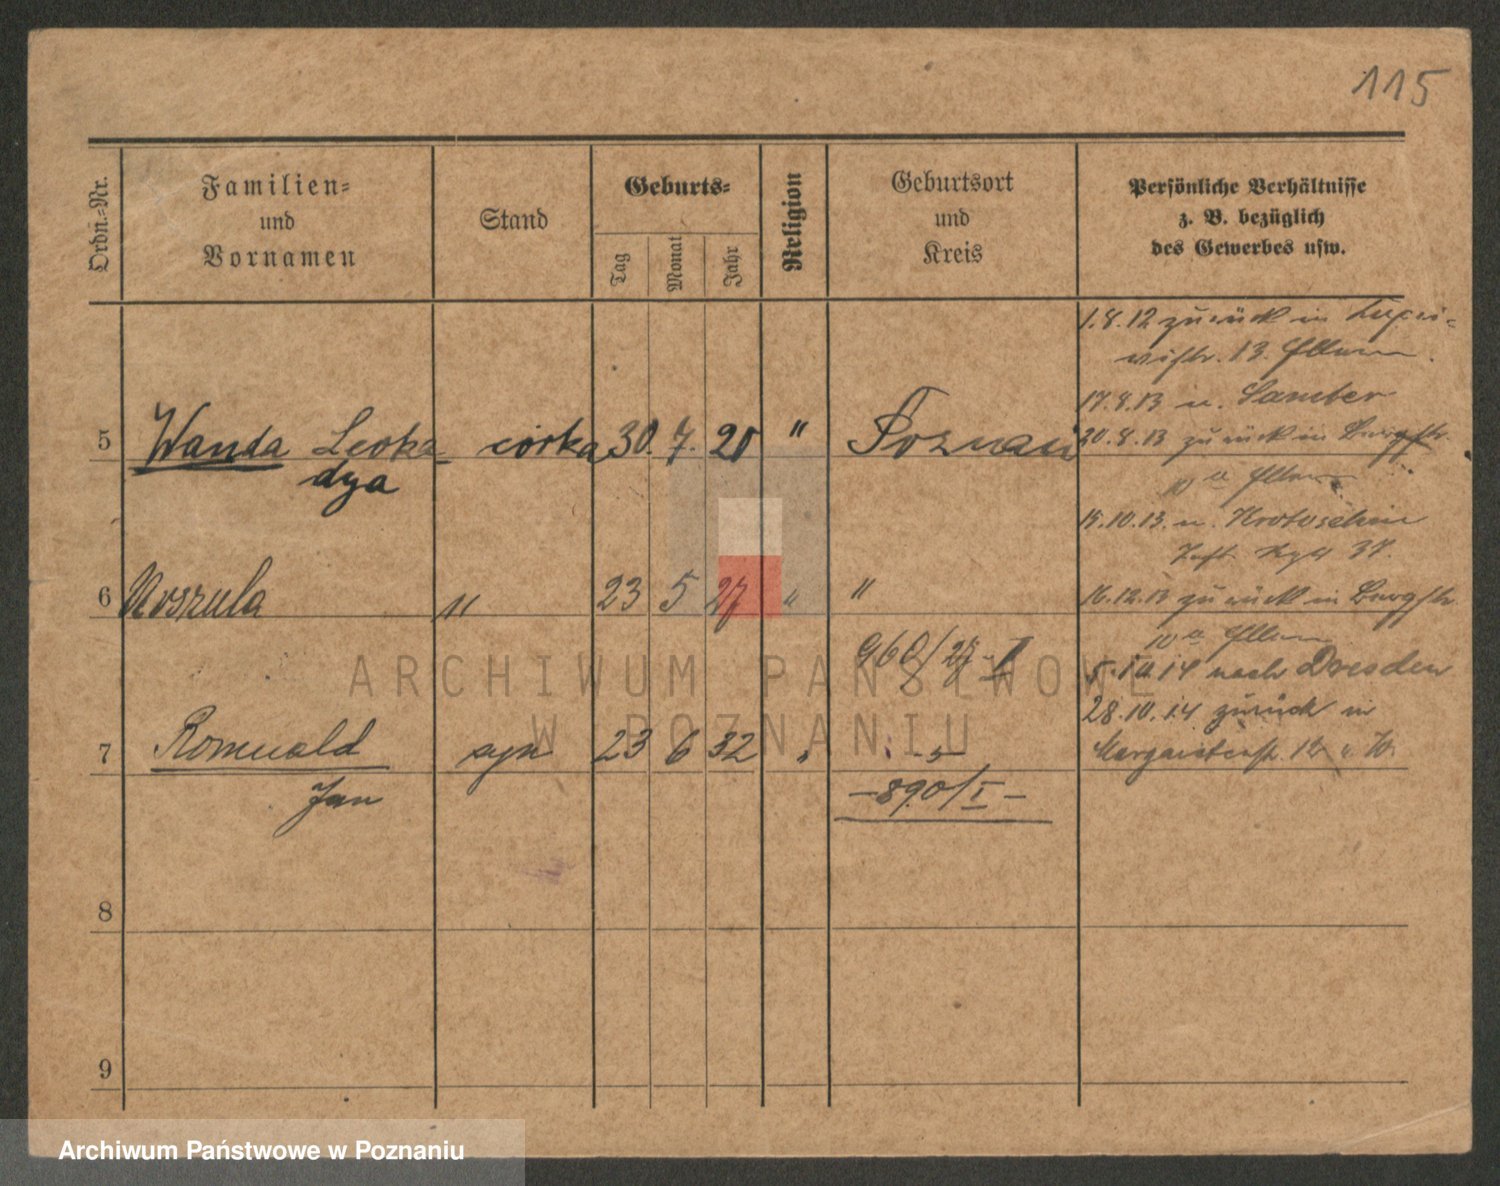 115
Ordn.-Nr.
Familien-
und
Vornamen
Stand
Geburts-
Tag
Monat
Jahr
Religion
Geburtsort
und
Kreis
Persönliche Verhältnisse
z. B. bezüglich
des Gewerbes usw.
1.8.12 zurück in
13. Eltern
17.8.13 n. Samter
5 Wanda Leoka- córka 30. 7. 20 " Poznań
dya
20.8.13 zurück in Burgstr.
10a Eltern
15.10.13. n. Krotoschin
37.
6 Urszula " 23 5 27 " "
16.12.13 zurück in Burgstr.
10a Eltern
960/27-I
5.10.14 nach Dresden
28.10.14 zurück in
7 Romuald syn 23 6 32 "
Jan
-890/I-
8
9
ARCHIWUM PAŃSTWOWE
W POZNANIU
Archiwum Państwowe w Poznaniu